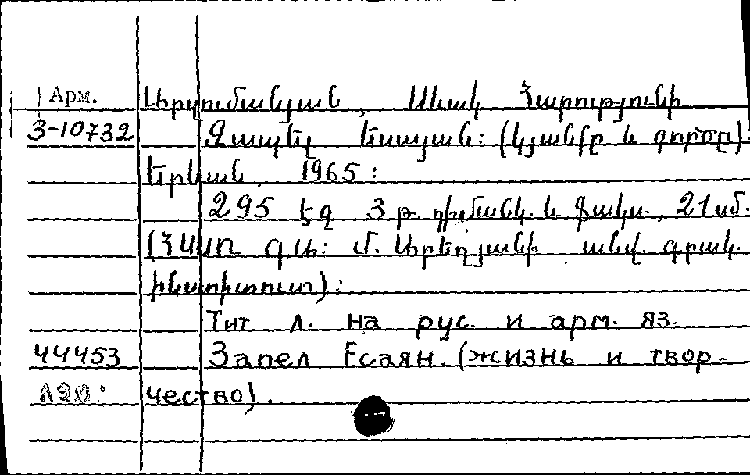 Арм. Մակ Հարությունի
3-10732 Զապել Եսայան: (Կյանքը և գործը).
Երևան, 1965:
295 էջ 3 թ. դիմանկ. և ֆակս., 21 սմ.
(ՀՍՍՌ ԳԱ: Մ. Աբեղյանի անվ. գրակ.
ինստիտուտ):
Тит л. на рус. и арм. яз.
44453 Запел Есаян. (жизнь и твор-
чество).